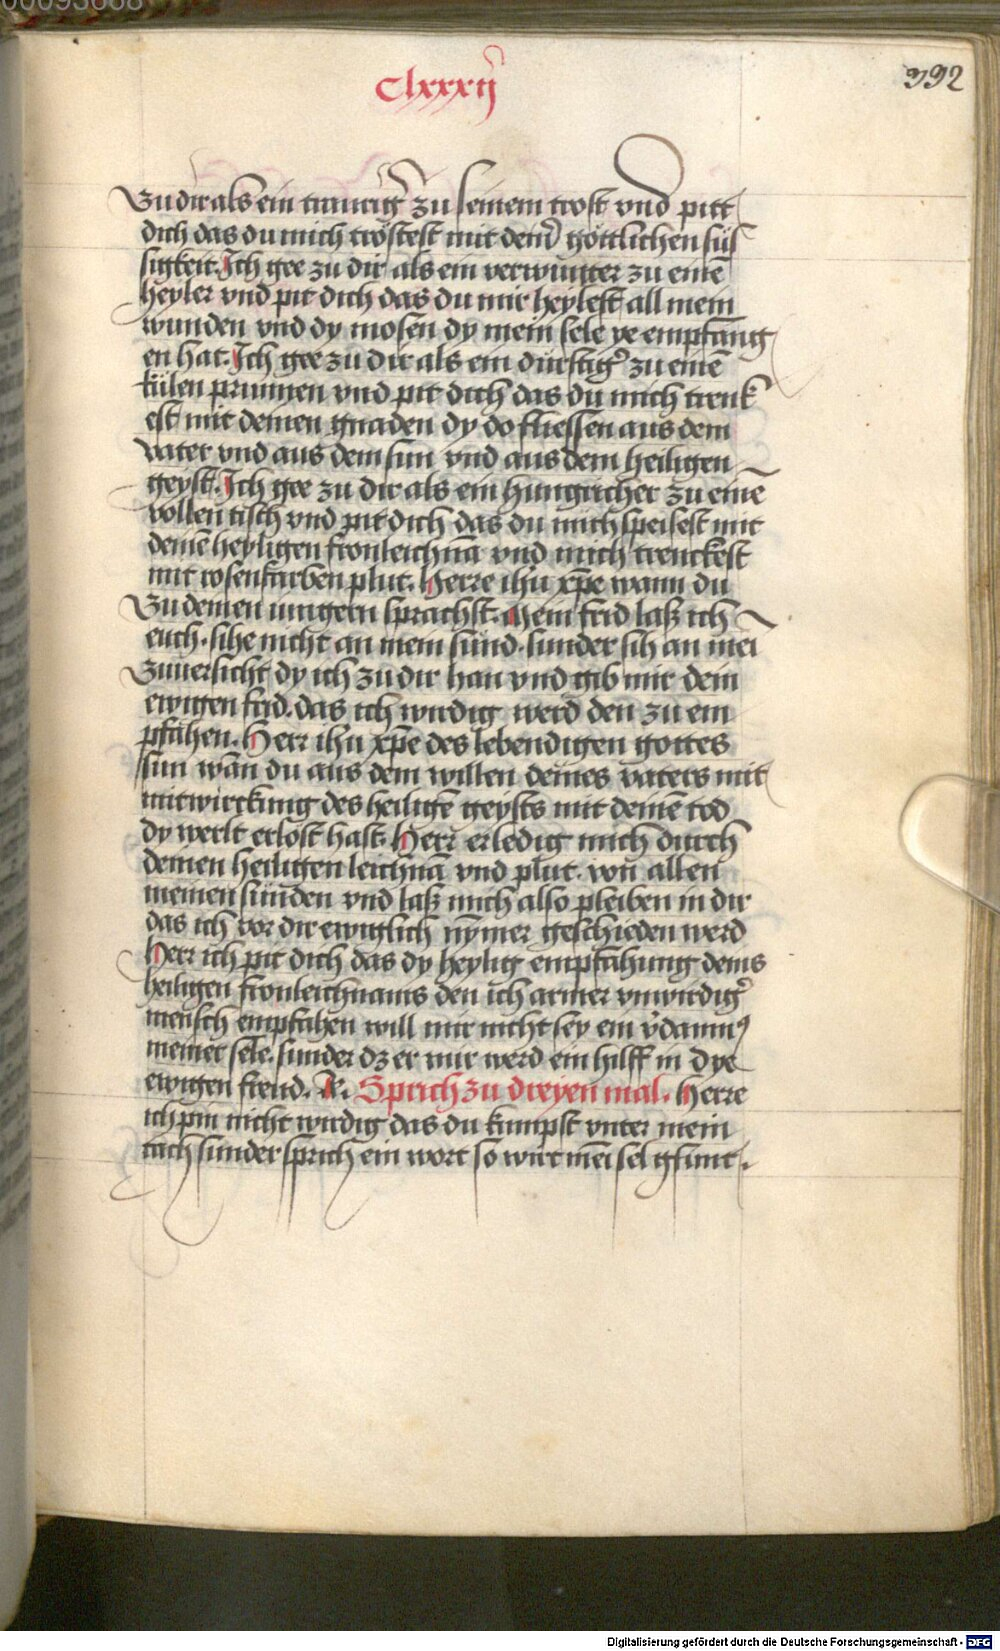 00093668
Clxxxij
392
Zu dir als ein trauriger zu seinem trost vnd pitt
dich das du mich tröstest mit deiner göttlichen süs
sigkeit. Ich gee zu dir als ein verwunter zu einē
heyler vnd pit dich das du mir heylest all mein
wunden vnd dy mosen dy mein sele ye empfang
en hat. Ich gee zu dir als ein dürstigʾ zu einē
külen prunnen vnd pit dich das du mich trenk
est mit deinen gnaden dy do fliessen aus dem
vater vnd aus dem sun vnd aus dem heiligen
geyst. Ich gee zu dir als ein hungricher zu einē
vollen tisch vnd pit dich das du mich speisest mit
deinē heyligen fronleichnā vnd mich trenckest
mit rosenfarben plut. Herre ihū xp̄e wann du
Zu deinen iungern sprachst. Mein frid laß ich
euch. sihe nicht an mein sünd. sunder sih an mei
Zuuersicht dy ich zu dir han vnd gib mir dein
ewigen frid. das ich wirdig werd den zu em
pfahen. Herr ihū xp̄e des lebendigen gottes
sun wān du aus dem willen deines vaters mit
mitwirckung des heiligē geysts mit deinē tod
dy werlt erlost hast. Herr erledig mich durch
deinen heiligen leichnā vnd plut. von allen
meinen sünden vnd laß mich also pleiben in dir
das ich vor dir ewiglich nȳmer geschieden werd
Herr ich pit dich das dy heylig empfahung deins
heiligen fronleichnams den ich armer vnwirdigʾ
mensch empfahen will mir nicht sey ein v̾damnꝰ
meiner sele. sunder dz er mir werd ein hilff in dye
ewigen freud. A. Sprich zu dreyen mal. Herre
ich pin nicht wirdig das du kumpst vnter mein
tach sunder sprich ein wort so wirt mēi sel gsunt.
Digitalisierung gefördert durch die Deutsche Forschungsgemeinschaft - DFG